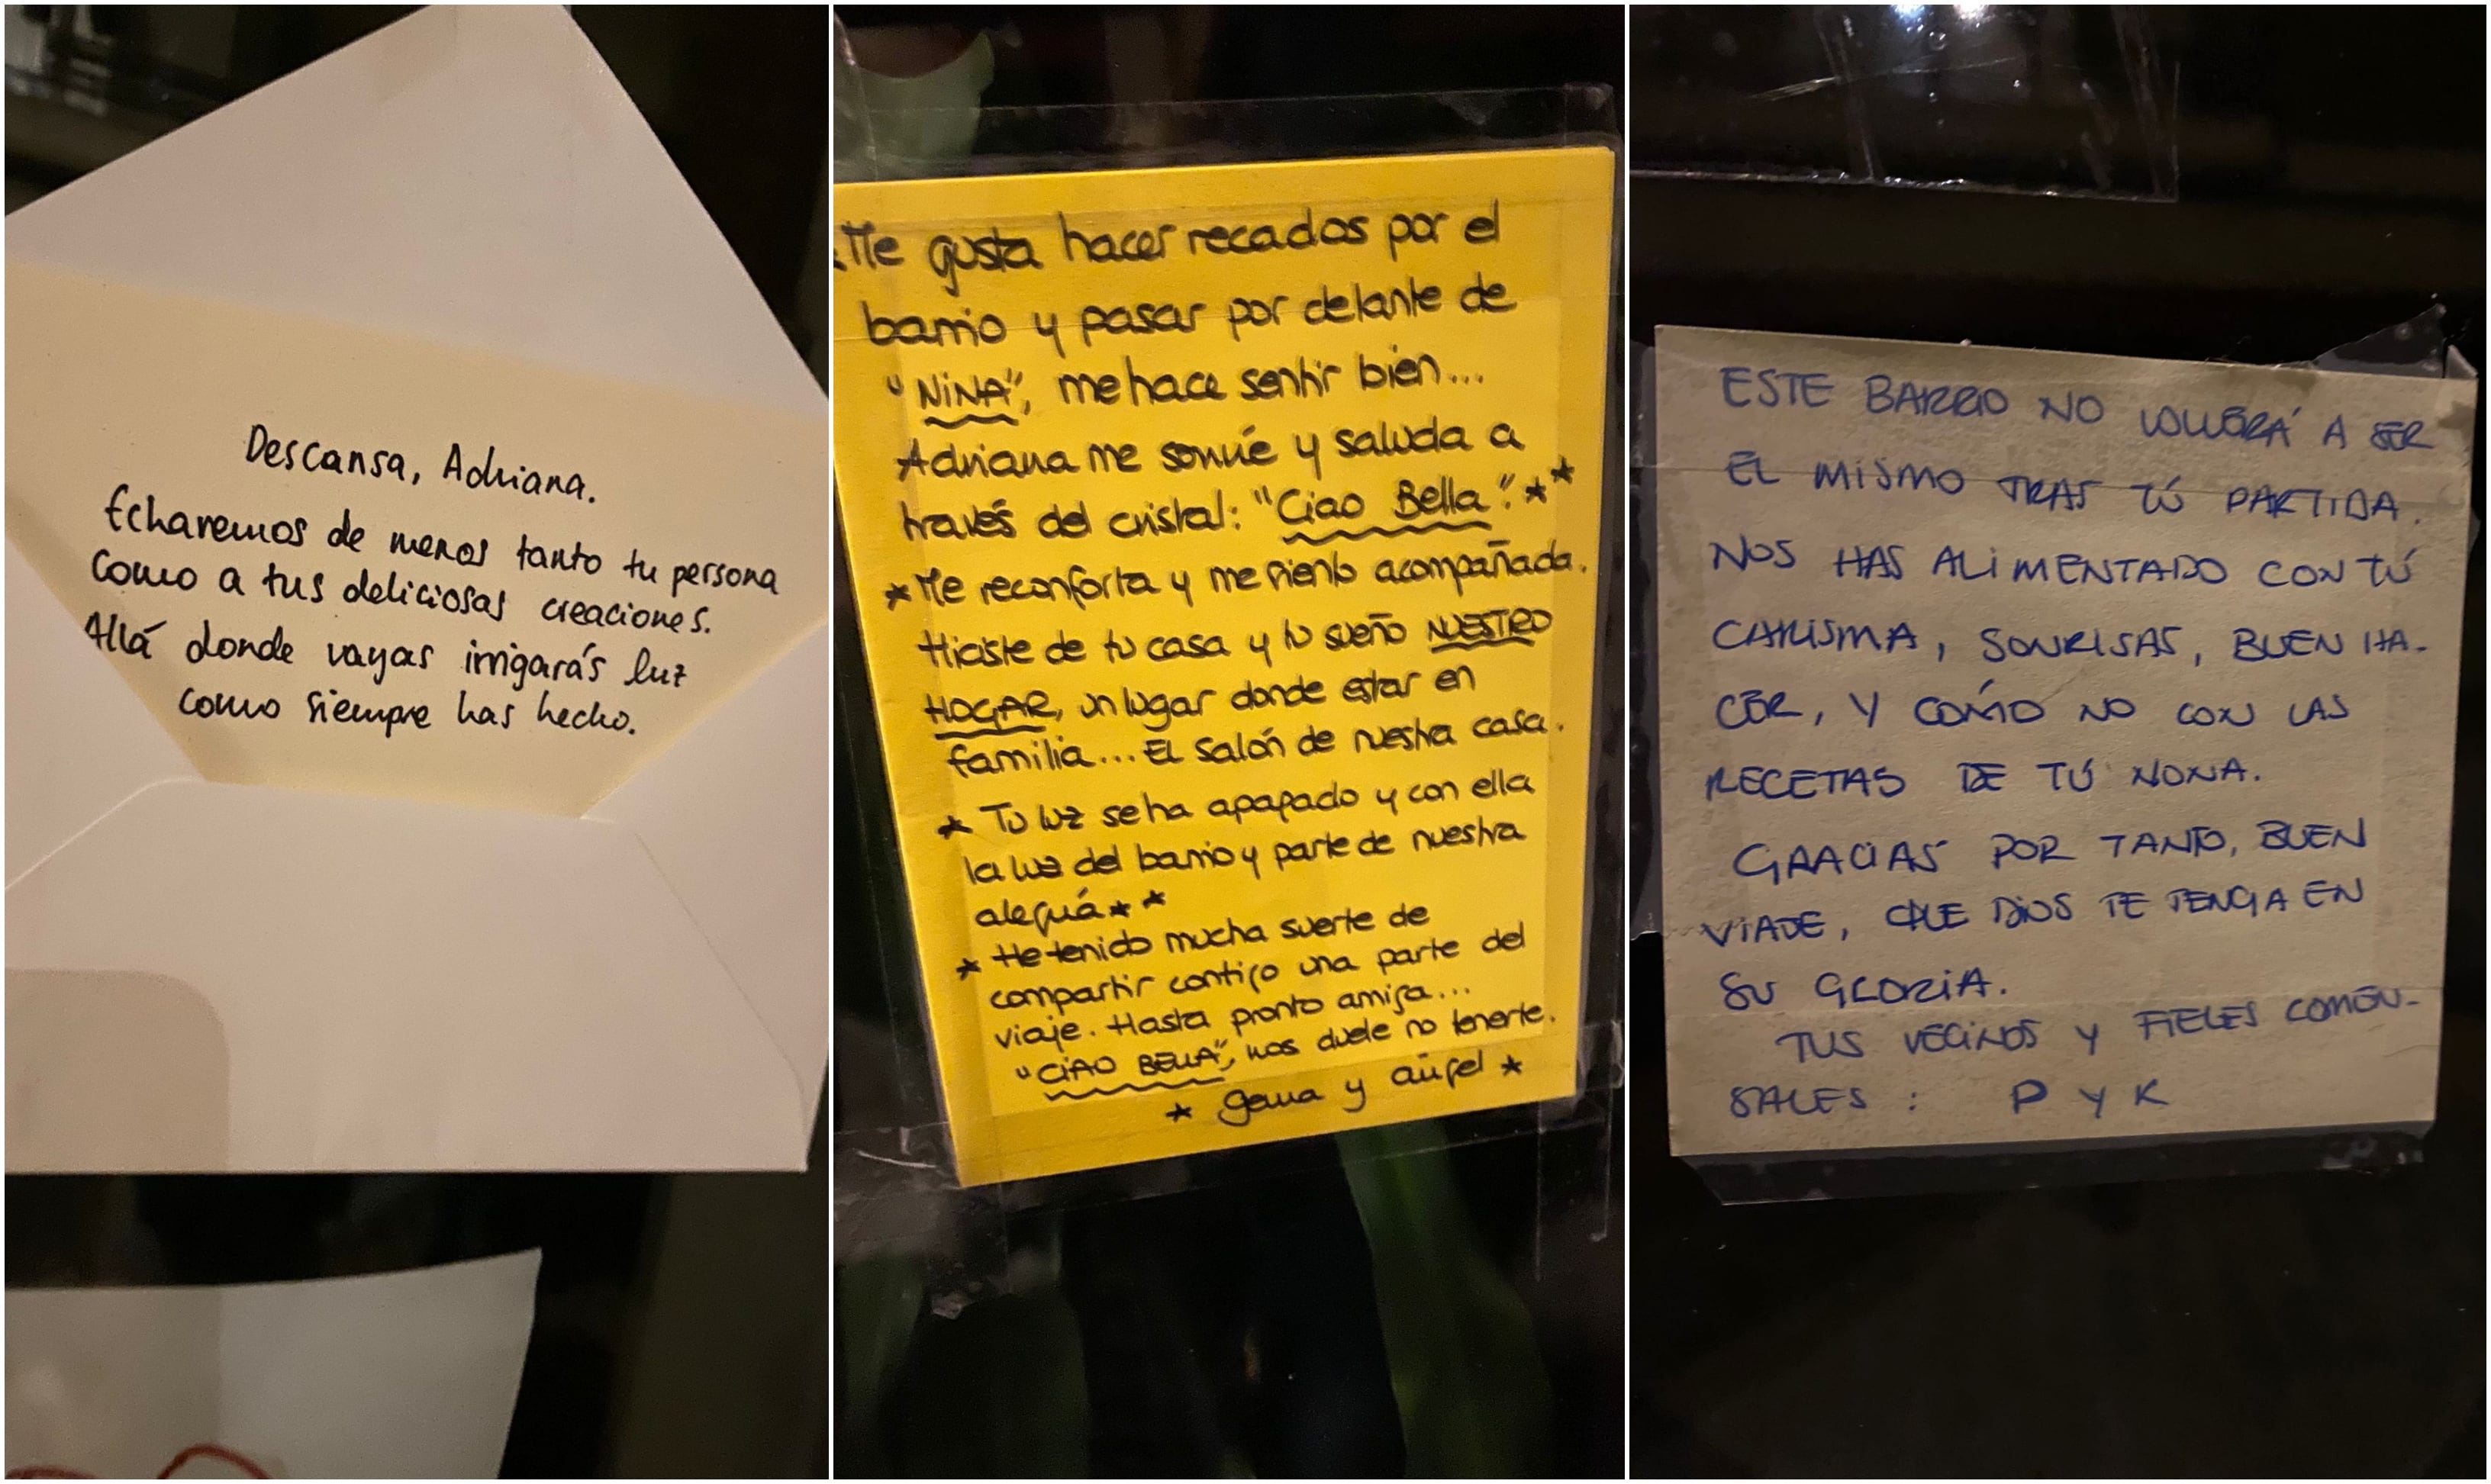 Descansa, Adriana.
Echaremos de menos tanto tu persona
como a tus deliciosas creaciones.
Allá donde vayas irrigarás luz
como siempre has hecho.
Me gusta hacer recados por el
barrio y pasar por delante de
"NiNA", me hace sentir bien...
Adriana me sonríe y saluda a
través del cristal: "Ciao Bella". ★★
★ Me reconforta y me siento acompañada.
Hiciste de tu casa y tu sueño NUESTRO
HOGAR, un lugar donde estar en
familia... El salón de nuestra casa.
★ Tu luz se ha apagado y con ella
la luz del barrio y parte de nuestra
alegría ★★
★ He tenido mucha suerte de
compartir contigo una parte del
viaje. Hasta pronto amiga...
"CiAO BELLA", nos duele no tenerte.
★ gema y ángel ★
ESTE BARRIO NO VOLVERÁ A SER
EL MISMO TRAS TÚ PARTIDA.
NOS HAS ALIMENTADO CON TÚ
CARISMA, SONRISAS, BUEN HA-
CER, Y CÓMO NO CON LAS
RECETAS DE TÚ NONA.
GRACIAS POR TANTO, BUEN
VIAJE, QUE DIOS TE TENGA EN
SU GLORIA.
TUS VECINOS Y FIELES COMEN-
SALES : P Y K